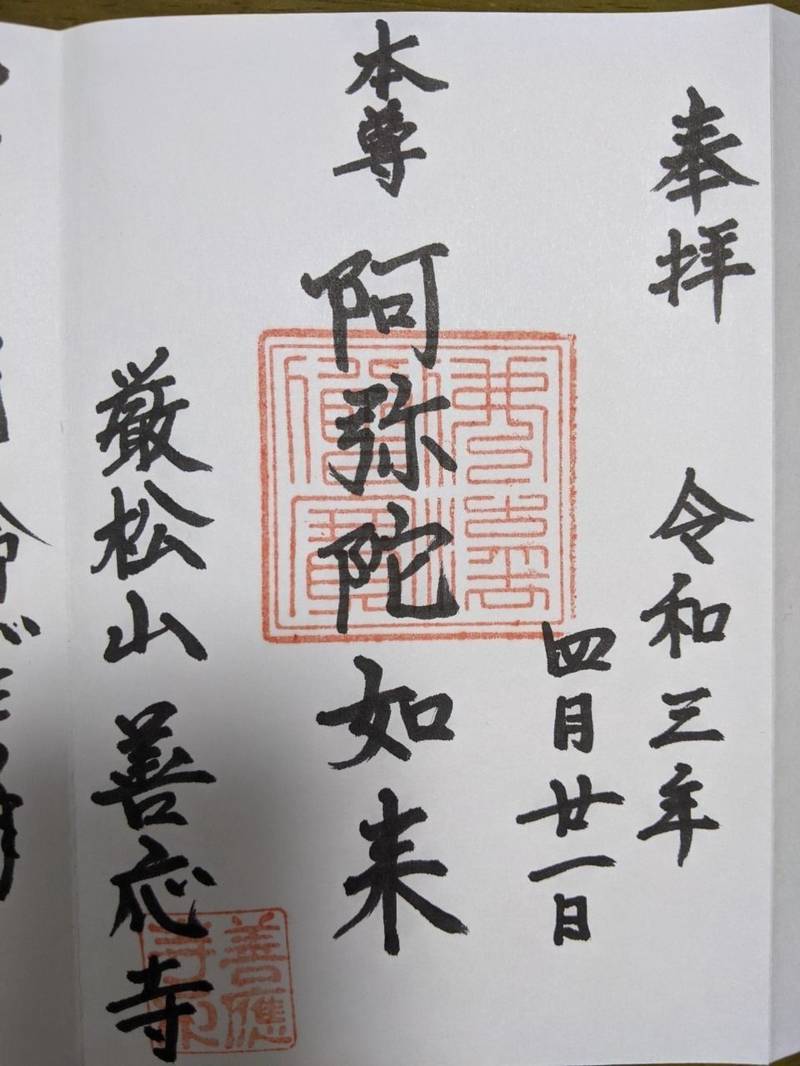 奉拝 令和三年
四月廿一日
本尊 阿弥陀如来
佛法僧寳
厳松山 善応寺
善應寺印